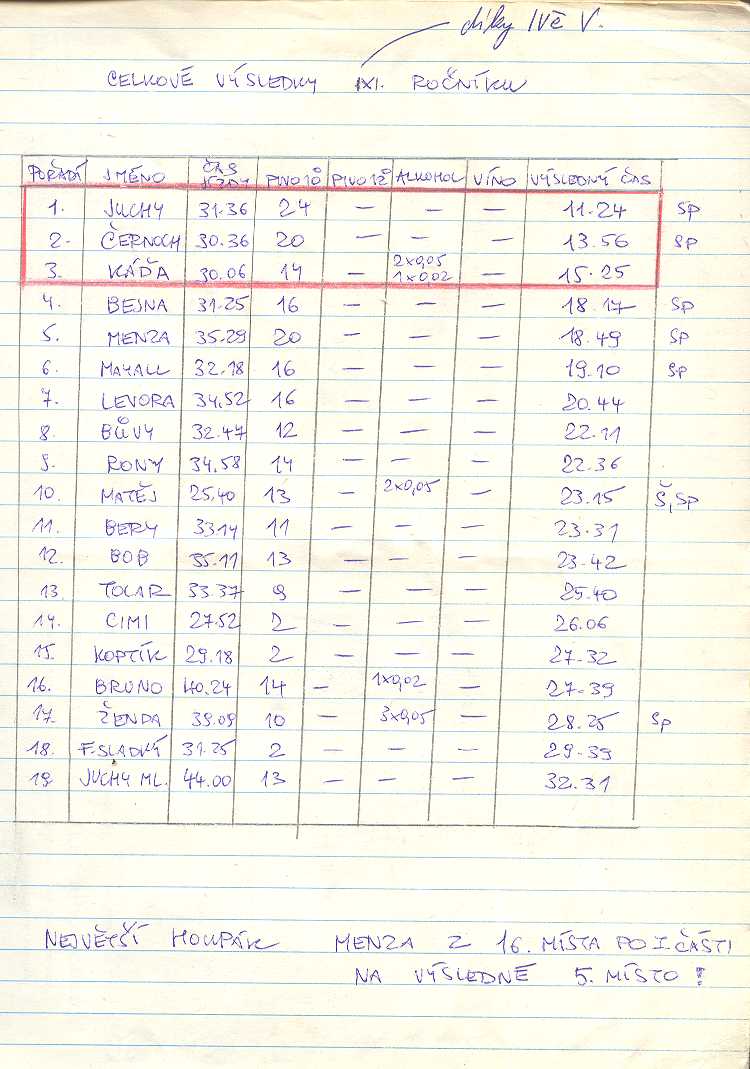 díky IVĚ V.
CELKOVÉ VÝSLEDKY IXI. ROČNÍKU
POŘADÍ JMÉNO ČAS JÍZDY PIVO 10° PIVO 12° ALKOHOL VÍNO VÝSLEDNÝ ČAS
1. JUCHY 31.36 24 — — — 11.24 SP
2. ČERNOCH 30.36 20 — — — 13.56 SP
3. KÁĎA 30.06 14 — 2x0,05 1x0,02 — 15.25
4. BEJNA 31.25 16 — — — 18.17 SP
5. MENZA 35.29 20 — — — 18.49 SP
6. MAYALL 32.18 16 — — — 19.10 SP
7. LEVORA 34.52 16 — — — 20.44
8. BŮVY 32.47 12 — — — 22.11
9. RONY 34.58 14 — — — 22.36
10. MATĚJ 25.40 13 — 2x0,05 — 23.15 Š, SP
11. BERY 33.14 11 — — — 23.31
12. BOB 35.11 13 — — — 23.42
13. TOCAR 33.37 9 — — — 25.40
14. CIMI 27.52 2 — — — 26.06
15. KOPTÍK 29.18 2 — — — 27.32
16. BRUNO 40.24 14 — 1x0,02 — 27.39
17. ŽENDA 39.09 10 — 3x0,05 — 28.25 SP
18. F. SLADKÝ 31.25 2 — — — 29.39
19. JUCHY ML. 44.00 13 — — — 32.31
NEJVĚTŠÍ HOUPÁK MENZA Z 16. MÍSTA PO I. ČÁSTI
NA VÝSLEDNÉ 5. MÍSTO !